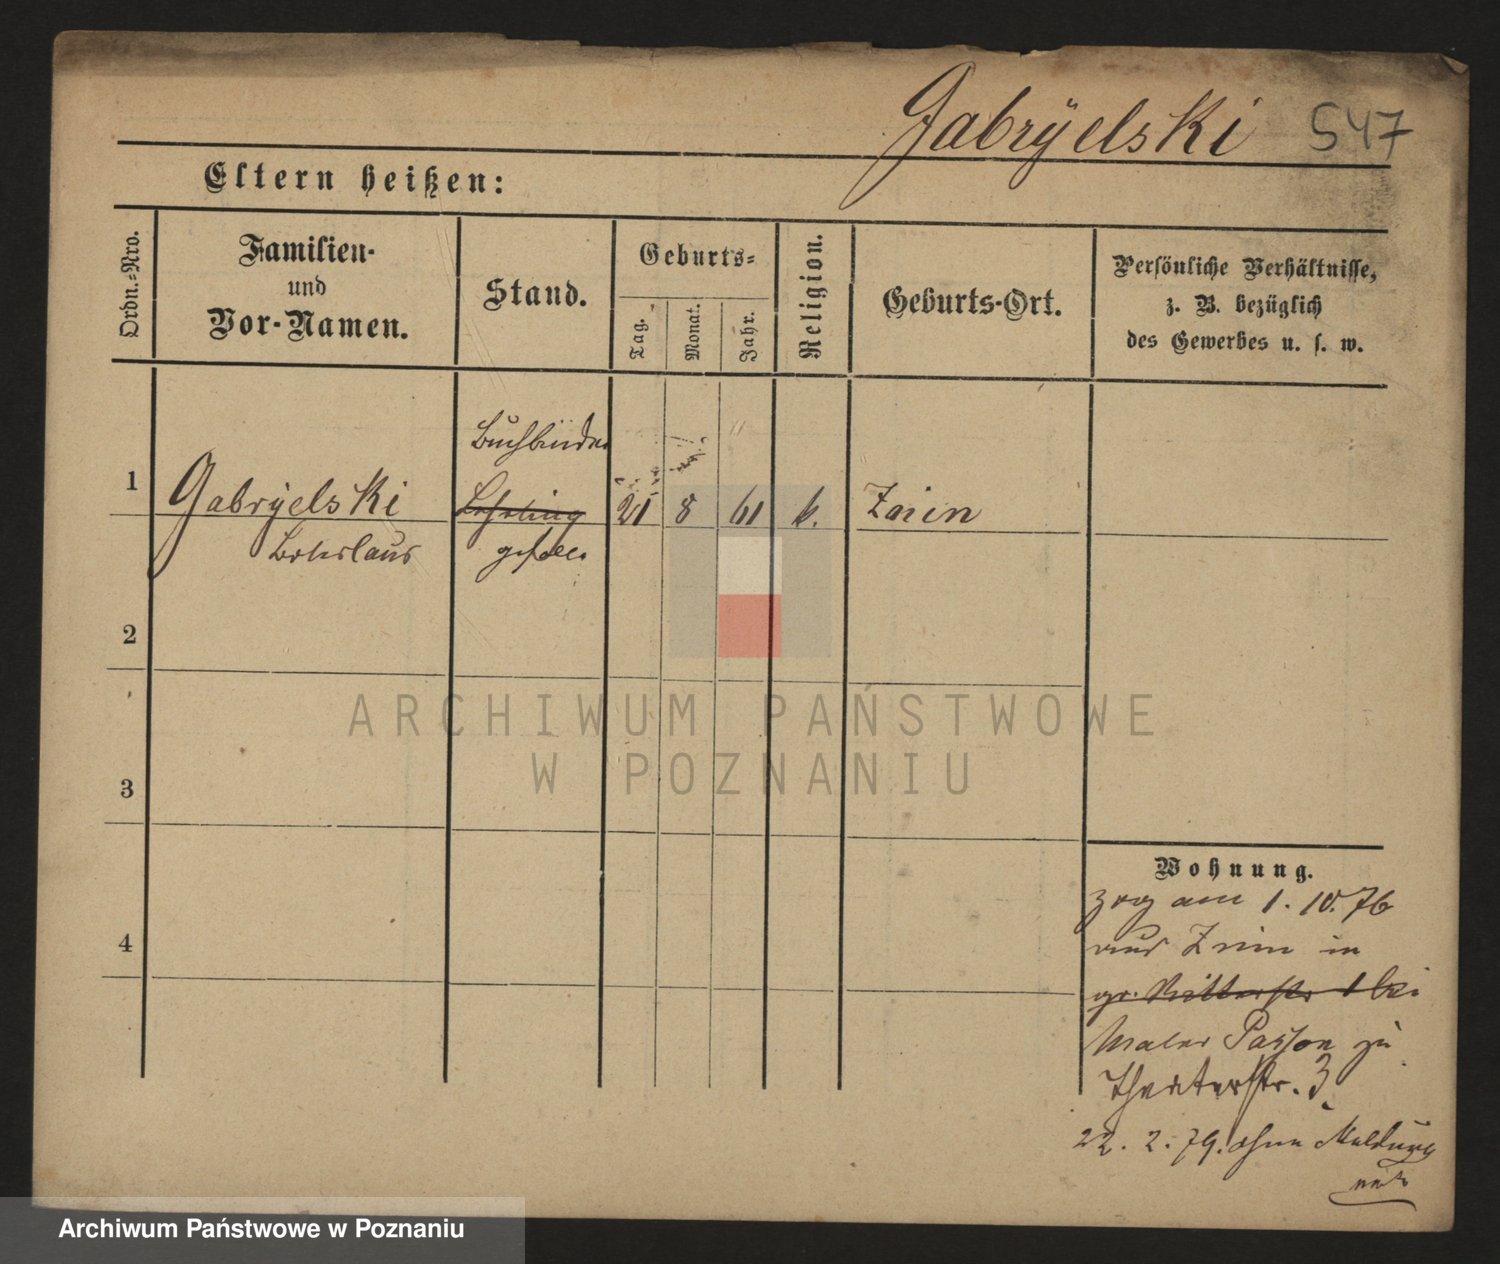 Gabryelski 547
Eltern heißen:
Ordn.-Nro.
Familien-
und
Vor-Namen.
Stand.
Geburts-
Tag.
Monat.
Jahr.
Religion.
Geburts-Ort.
Persönliche Verhältnisse,
z. B. bezüglich
des Gewerbes u. s. w.
1
Gabryelski
Boleslaus
Buchbinder
Lehrling
21 8 61 k.
Znin
2
3
4
Wohnung.
zog am 1. 10. 76
aus Znin in
gr. Ritterstr 1 bei
Maler zu
Theaterstr. 3.
22. 2. 79. ohne Meldung
ARCHIWUM PAŃSTWOWE
W POZNANIU
Archiwum Państwowe w Poznaniu